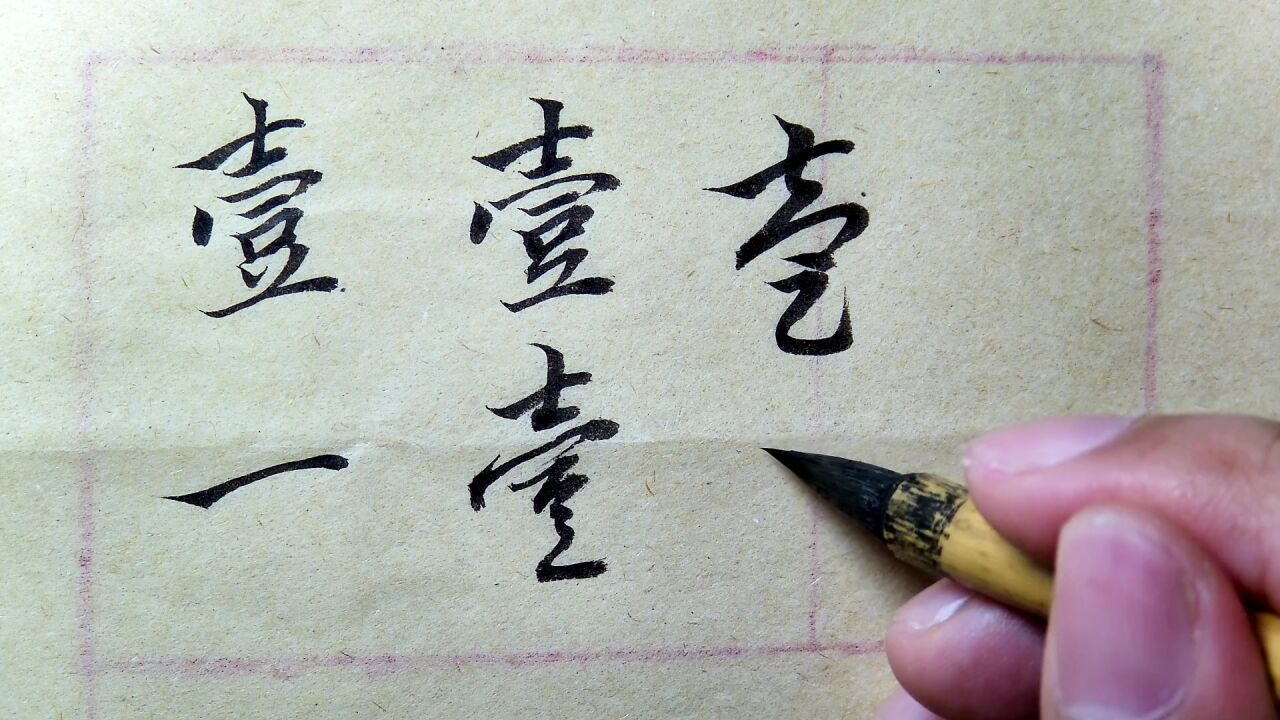 壹 壹 壹
一 壹